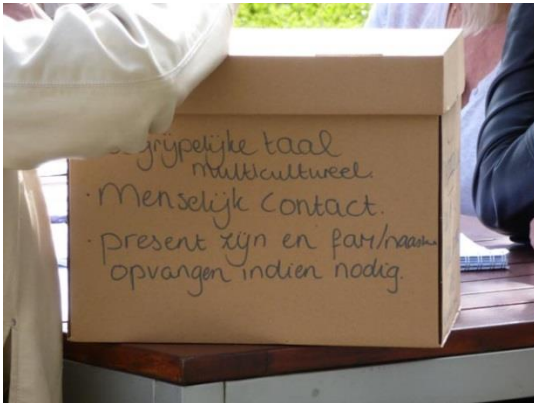 grijpelijke taal
multicultureel.
· Menselijk Contact.
· present zijn en fam/naaste
opvangen indien nodig.